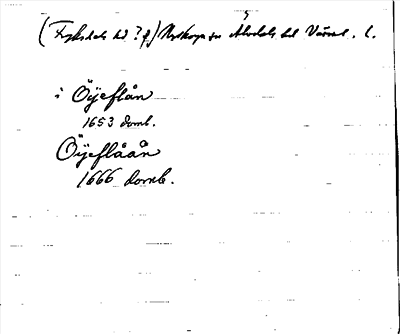 (Fryksdals hd ? f.) Nyskoga sn Älvdals hd Värml. l.
i Öÿeflån
1653 domb.
Öÿeflåån
1666 domb.